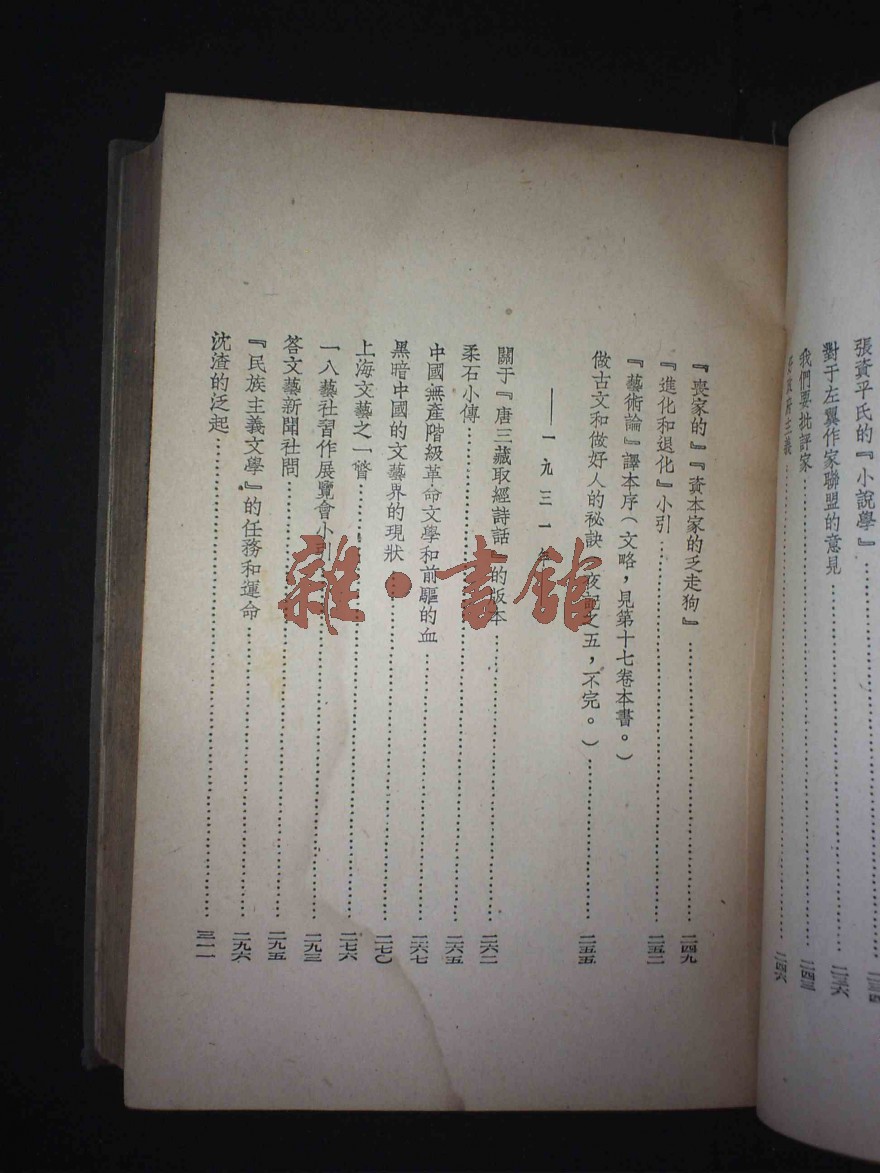 張資平氏的『小說學』
對于左翼作家聯盟的意見……二三六
我們要批評家……二四三
政府主義……二四六
『喪家的』『資本家的乏走狗』……二四九
『進化和退化』小引……二五二
『藝術論』譯本序(文略，見第十七卷本書。)
做古文和做好人的秘訣(夜記之五，不完。)……二五五
——一九三一年
關于『唐三藏取經詩話』的版本……二六二
柔石小傳……二六五
中國無產階級革命文學和前驅的血……二六七
黑暗中國的文藝界的現狀……二七〇
上海文藝之一瞥……二七六
一八藝社習作展覽會小引……二九三
答文藝新聞社問……二九五
『民族主義文學』的任務和運命……二九六
沈渣的泛起……三一一
雜·書館